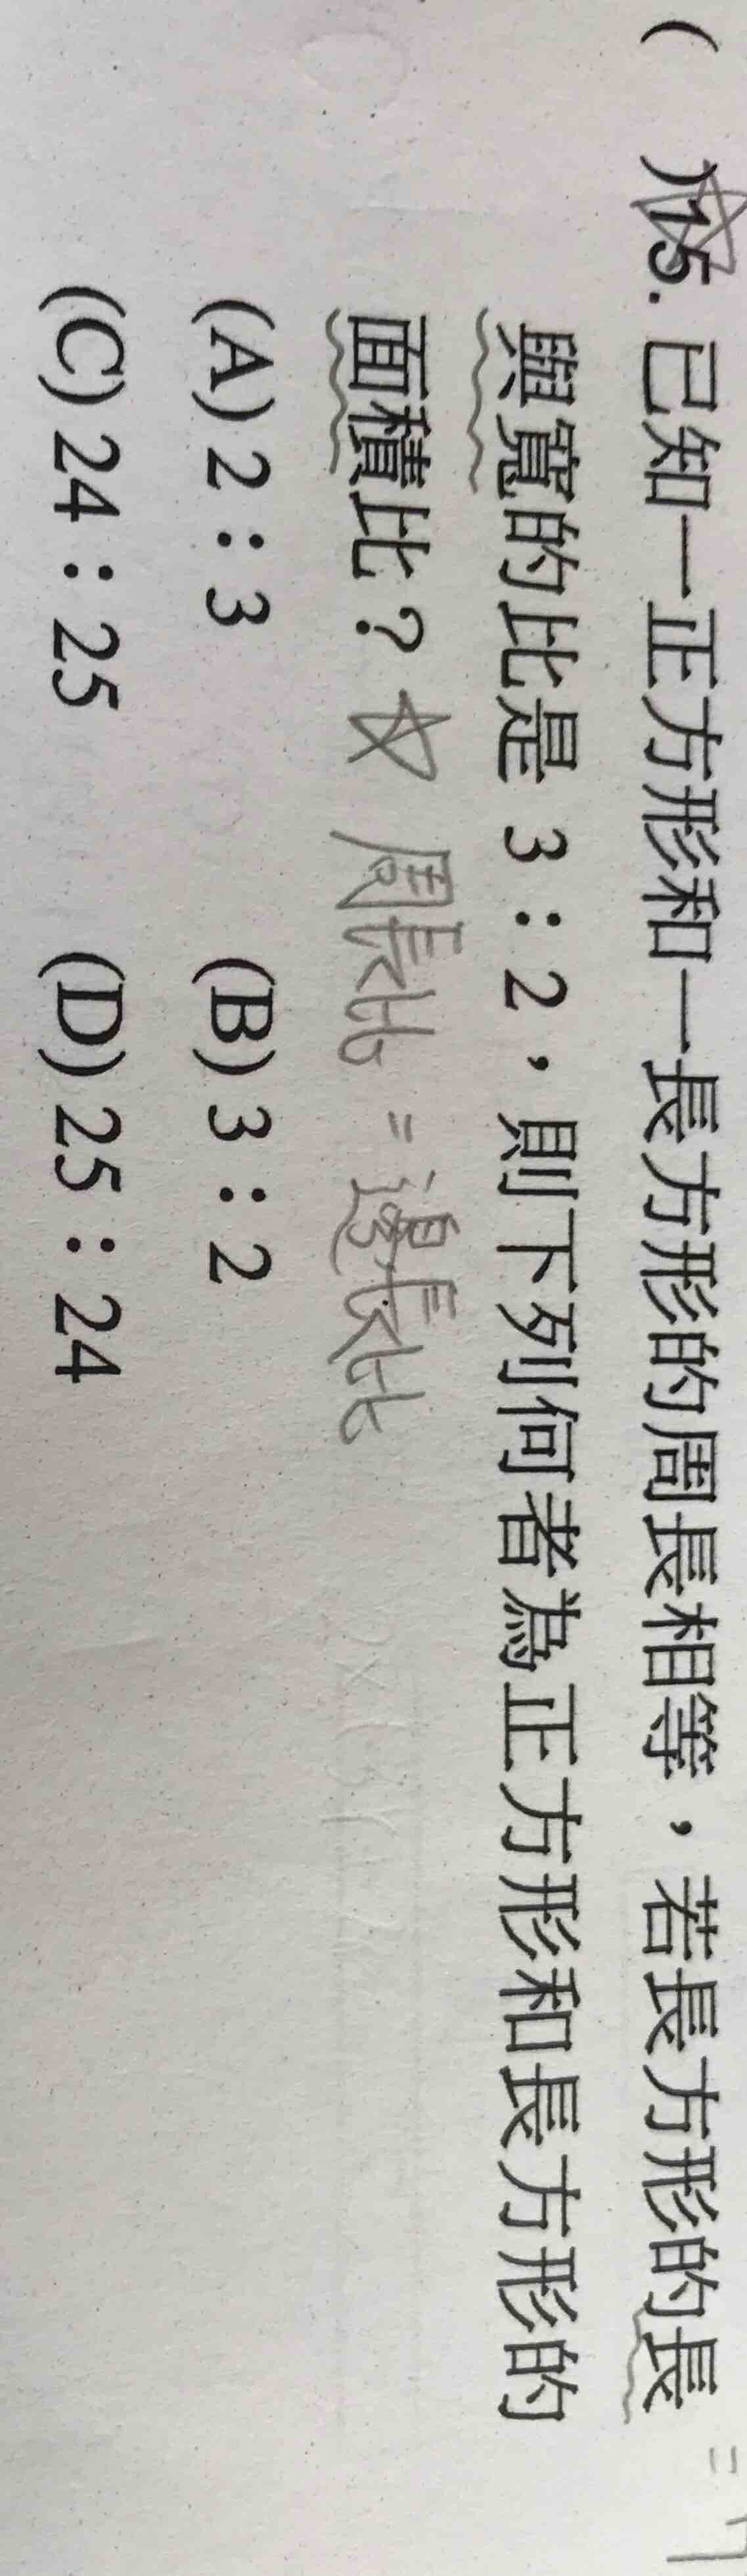 ( )15. 已知一正方形和一長方形的周長相等，若長方形的長
與寬的比是 3：2，則下列何者為正方形和長方形的
面積比？☆ 周長比 = 邊長比
(A) 2：3 (B) 3：2
(C) 24：25 (D) 25：24